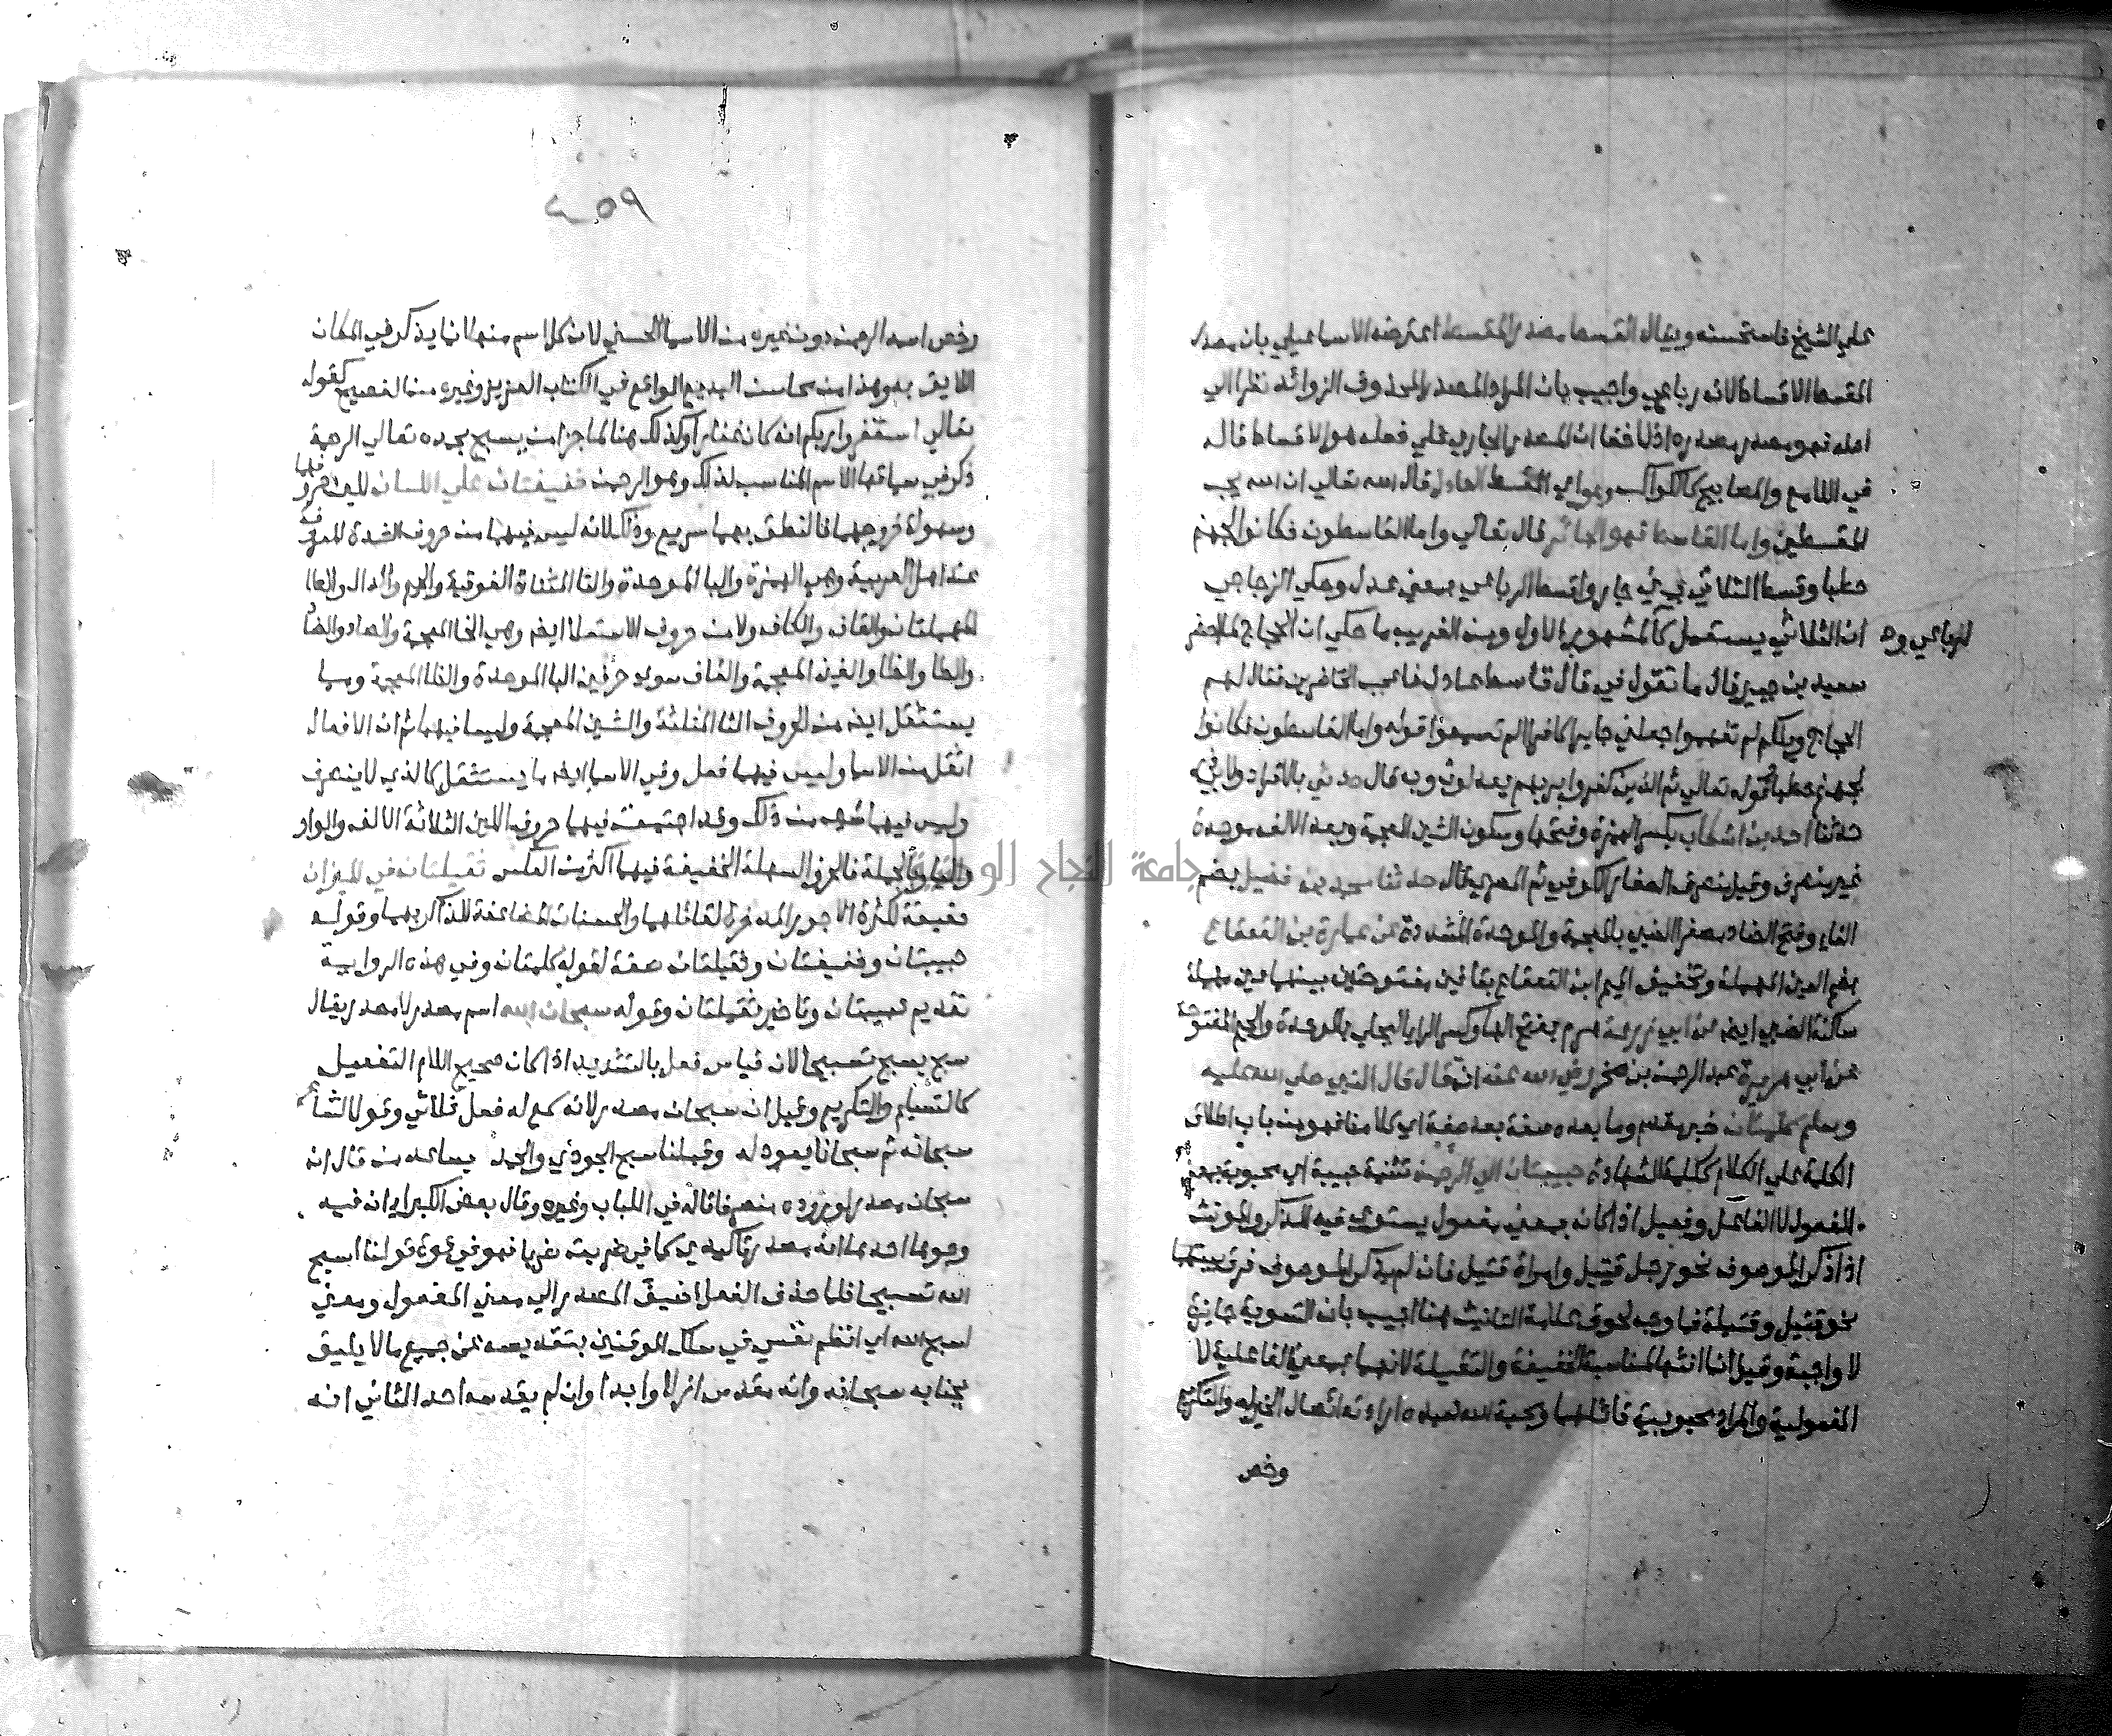 علي الشيخ فاستحسنه ويقال القسط مصدر المقسط اعترضه الاسماعيلي بان مصدر
المقسط الاقساط لانه رباعي واجيب بان المراد المصدر المحذوف الزوائد نظرا الي
اصله فهو مصدر مصدره اذ لا خفا ان المصدر الجاري علي فعله هو الاقساط قاله
في اللامع والمصابيح كالكواكب وهو اي المقسط العادل قال الله تعالي ان الله يحب
المقسطين واما القاسط فهو الجائر قال تعالي واما القاسطون فكانوا لجهنم
حطبا وقسط الثلاثي بمعني جار واقسط الرباعي بمعني عدل وحكي الزجاجي
ان الثلاثي يستعمل كالمشهور الاول ومن الغريب ما حكي ان الحجاج لما احضر
الرباعي وه
سعيد بن جبير قال ما تقول في قال قاسط عادل فاعجب الحاضرين فقال لهم
الحجاج ويلكم لم تفهموا جعلني جايرا كافرا الم تسمعوا قوله واما القاسطون فكانوا
لجهنم حطبا وقوله تعالي ثم الذين كفروا بربهم يعدلون وبه قال حدثني بالافراد ولابي ذر
حدثنا احمد بن اشكاب بكسر الهمزة وفتحها وسكون الشين المعجمة وبعد الالف موحدة
غير منصرف وقيل منصرف الصفار الكوفي ثم المصري قال حدثنا محمد بن فضيل بضم
الفاء وفتح الضاد مصغرا الضبي بالمعجمة والموحدة المشددة عن عمارة بن القعقاع
بضم العين المهملة وتخفيف الميم ابن القعقاع بقافين مفتوحتين بينهما عين مهملة
ساكنة الضبي ايضا عن ابي زرعة هرم بفتح الها وكسر الرا البجلي بالموحدة والجيم المفتوحة
عن ابي هريرة عبد الرحمن بن صخر رضي الله عنه انه قال قال النبي صلي الله عليه
وسلم كلمتان خبر مقدم وما بعده صفة بعد صفة اي كلامان فهو من باب اطلاق
الكلمة علي الكلام ككلمة الشهادة حبيبتان الي الرحمن تثنية حبيبة اي محبوبة بمعني
المفعول لا الفاعل وفعيل اذا كان بمعني مفعول يستوي فيه المذكر والمونث
اذا ذكر الموصوف نحو رجل قتيل وامراة قتيل فان لم يذكر الموصوف فرق بينهما
نحو قتيل وقتيلة فما وجه لحوق علامة التانيث هنا اجيب بان التسوية جائزة
لا واجبة وقيل انما انثها لمناسبة الخفيفة والثقيلة لانهما بمعني الفاعلية لا
المفعولية والمراد محبوبية قائلهما ومحبة الله لعبده ارادته ايصال الخير له والتكريم
وخص
٤٥٩
وخص اسمه الرحمن دون غيره من الاسما الحسني لان كل اسم منها انما يذكر في المكان
اللايق به وهذا من محاسن البديع الواقع في الكتاب العزيز وغيره من الفصيح كقوله
تعالي استغفروا ربكم انه كان غفارا وكذلك هنا لما جزا من يسبح بحمده تعالي الرحمة
ذكر في سياقها الاسم المناسب لذلك وهو الرحمن خفيفتان علي اللسان للين حروفهما
وسهولة خروجهما فالنطق بهما سريع وذلك لانه ليس فيهما من حروف الشدة المعروفة
عند اهل العربية وهي الهمزة والبا الموحدة والتا المثناة الفوقية والجيم والدال والطا
المهملتان والقاف والكاف ولا من حروف الاستعلا ايضا وهي الخا المعجمة والصاد والضاد
والطا والظا والغين المعجمة والقاف سوي حرفين البا الموحدة والظا المعجمة ومما
يستثقل ايضا من الحروف الثا المثلثة والشين المعجمة وليسا فيهما ثم ان الافعال
اثقل من الاسما وليس فيهما فعل وفي الاسما ايضا ما يستثقل كالذي لا ينصرف
وليس فيهما شي من ذلك وقد اجتمعت فيهما حروف اللين الثلاثة الالف والواو
واليا وبالجملة فالحروف السهلة الخفيفة فيهما اكثر من العكس ثقيلتان في الميزان
حقيقة لكثرة الاجور المدخرة لقائلهما والحسنات المضاعفة للذاكر بهما وقوله
حبيبتان وخفيفتان وثقيلتان صفة لقوله كلمتان وفي هذه الرواية
تقديم حبيبتان وتاخير ثقيلتان وقوله سبحان الله اسم مصدر لا مصدر يقال
سبح يسبح تسبيحا لان قياس فعل بالتشديد اذا كان صحيح اللام التفعيل
كالتسليم والتكريم وقيل ان سبحان مصدر لانه سمع له فعل ثلاثي وقول الشاعر
سبحانه ثم سبحانا يعود له وقبلنا سبح الجودي والجمد يساعد من قال ان
سبحان مصدر لوروده منصرفا قاله في اللباب وغيره وقال بعض الكبرا ان فيه
وجوها احدها انه مصدر تاكيدي كما في ضربته ضربا فهو في قوة قولنا اسبح
الله تسبيحا فلما حذف الفعل اضيف المصدر الي معني المفعول ومعني
اسبح الله اي انظم نفسي في سلك الموقنين بتقديسه عن جميع ما لا يليق
بجنابه سبحانه وانه مقدس ازلا وابدا وان لم يقدسه احد الثاني انه
جامعة النجاح الوطنية